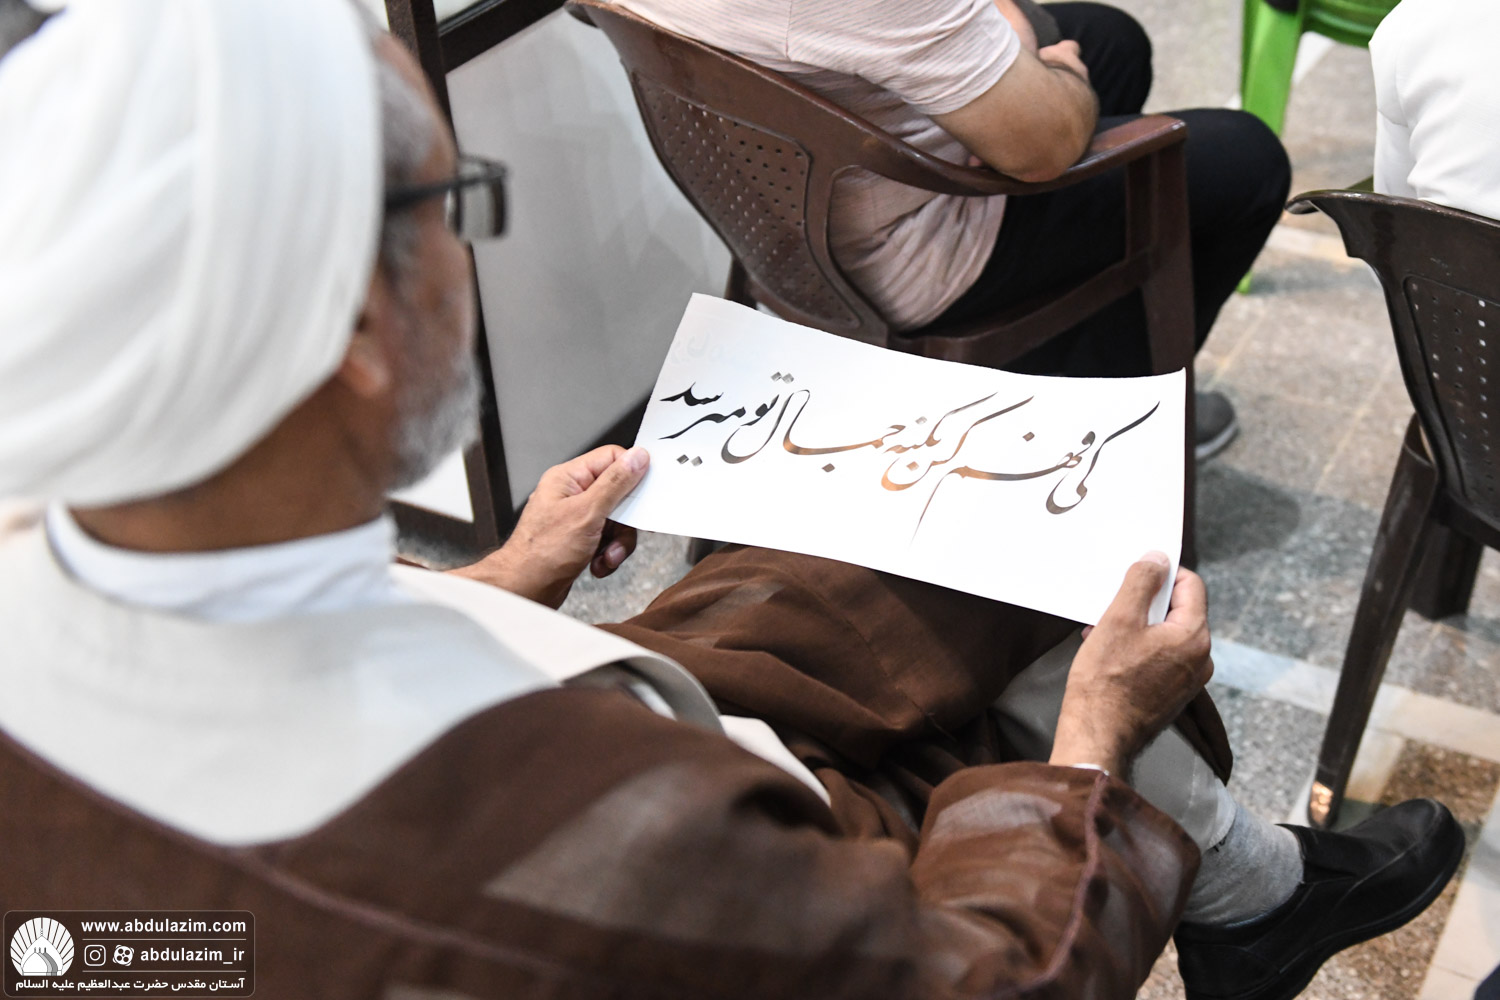 کی فهم کس بکنه جمال تو میرسد
www.abdulazim.com
abdulazim_ir
آستان مقدس حضرت عبدالعظیم علیه السلام